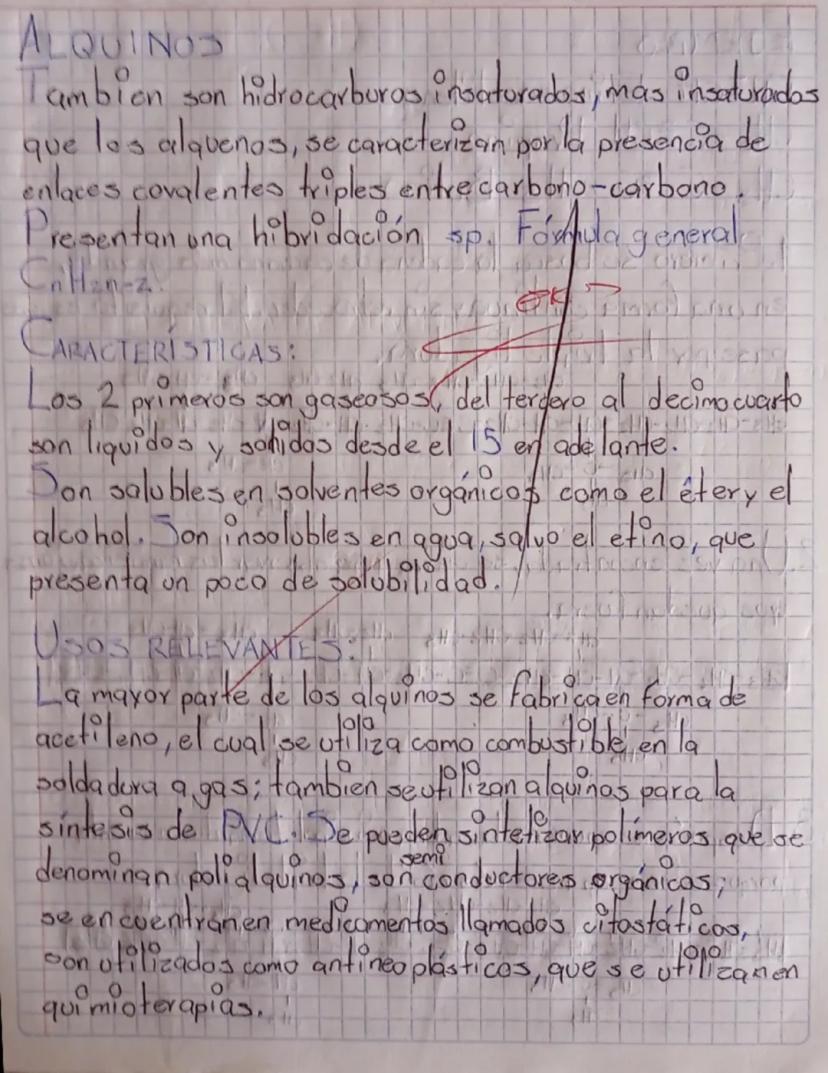 ALQUINOS
Tambien son hidrocarburos insaturados, más insaturados
que los alquenos, se caracterizan por la presencia de
enlaces covalentes triples entre carbono-carbono.
Presentan una hibridación sp. Fórmula general
CnH2n-2.
CARACTERÍSTICAS:
Los 2 primeros son gaseosos, del tercero al decimocuarto
son liquidos y solidos desde el 15 en adelante.
Son solubles en solventes orgánicos como el éter y el
alcohol. Son insolubles en agua, salvo el etino, que
presenta un poco de solubilidad.
USOS RELEVANTES:
La mayor parte de los alquinos se fabrica en forma de
acetileno, el cual se utiliza como combustible en la
soldadura a gas; tambien se utilizan alquinos para la
síntesis de PVC. Se pueden sintetizar polímeros que se
denominan polialquinos, son semiconductores orgánicos;
se encuentran en medicamentos llamados citostáticos,
son utilizados como antineoplásticos, que se utilizan en
quimioterapias.